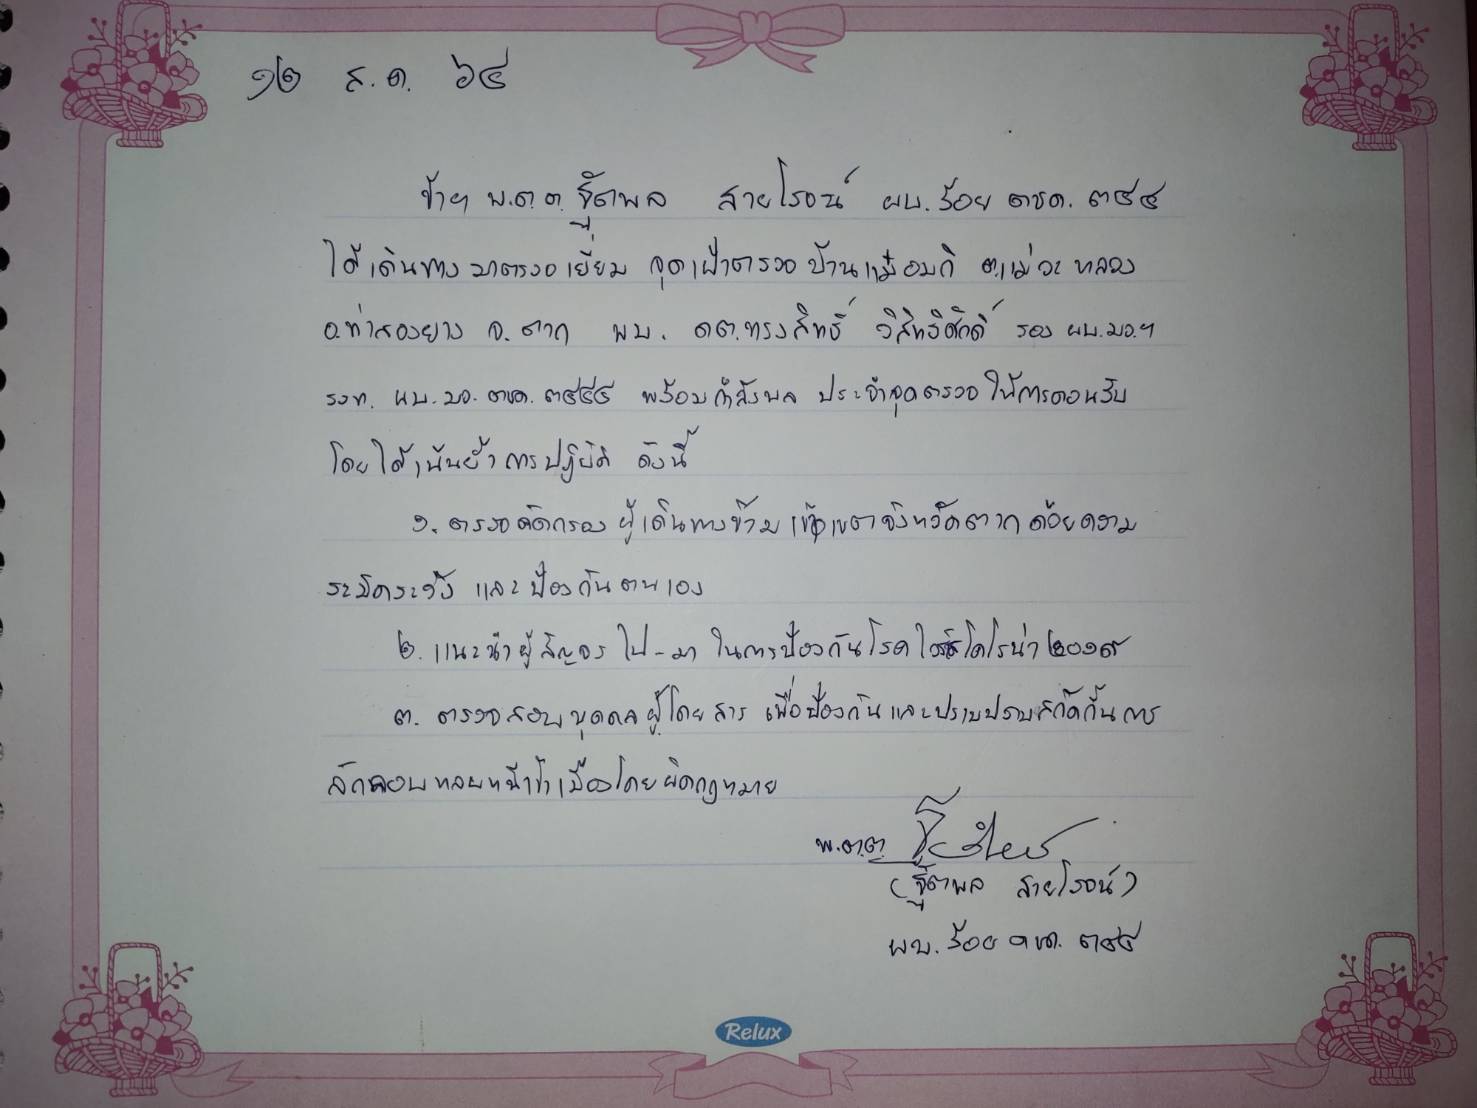 ๑๒ ส.ค. ๖๔
ข้าฯ พ.ต.ต. ฐิตพล สายโรจน์ ผบ.ร้อย ตชด. ๓๔๔
ได้เดินทางมาตรวจเยี่ยม จุดเฝ้าตรวจ บ้านแม่อมกิ ต.แม่วะหลวง
อ.ท่าสองยาง จ.ตาก พบ. ดต.ทรงสิทธิ์ วิสิทธิศักดิ์ รอง ผบ.มว.ฯ
รงท. ผบ.มว. ตชด. ๓๔๔๕ พร้อมกำลังพล ประจำจุดตรวจ ให้การต้อนรับ
โดยได้เน้นย้ำการปฏิบัติ ดังนี้
๑. ตรวจคัดกรอง ผู้เดินทางข้าม เขตจังหวัดตาก ด้วยความ
ระมัดระวัง และป้องกันตนเอง
๒. แนะนำผู้สัญจร ไป-มา ในการป้องกันโรค โคโรน่า ๒๐๑๙
๓. ตรวจสอบบุคคลผู้โดยสาร เพื่อป้องกันและปราบปรามสกัดกั้นการ
ลักลอบหลบหนีเข้าเมืองโดยผิดกฎหมาย
พ.ต.ต.
(ฐิตพล สายโรจน์)
ผบ.ร้อย ตชด. ๓๔๔
Relux